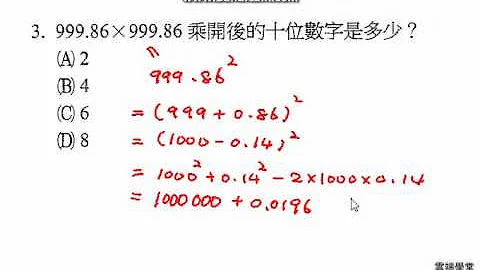 3. 999.86×999.86 乘開後的十位數字是多少？
(A) 2
(B) 4
(C) 6
(D) 8
999.86²
= (999 + 0.86)²
= (1000 - 0.14)²
= 1000² + 0.14² - 2×1000×0.14
= 1000000 + 0.0196